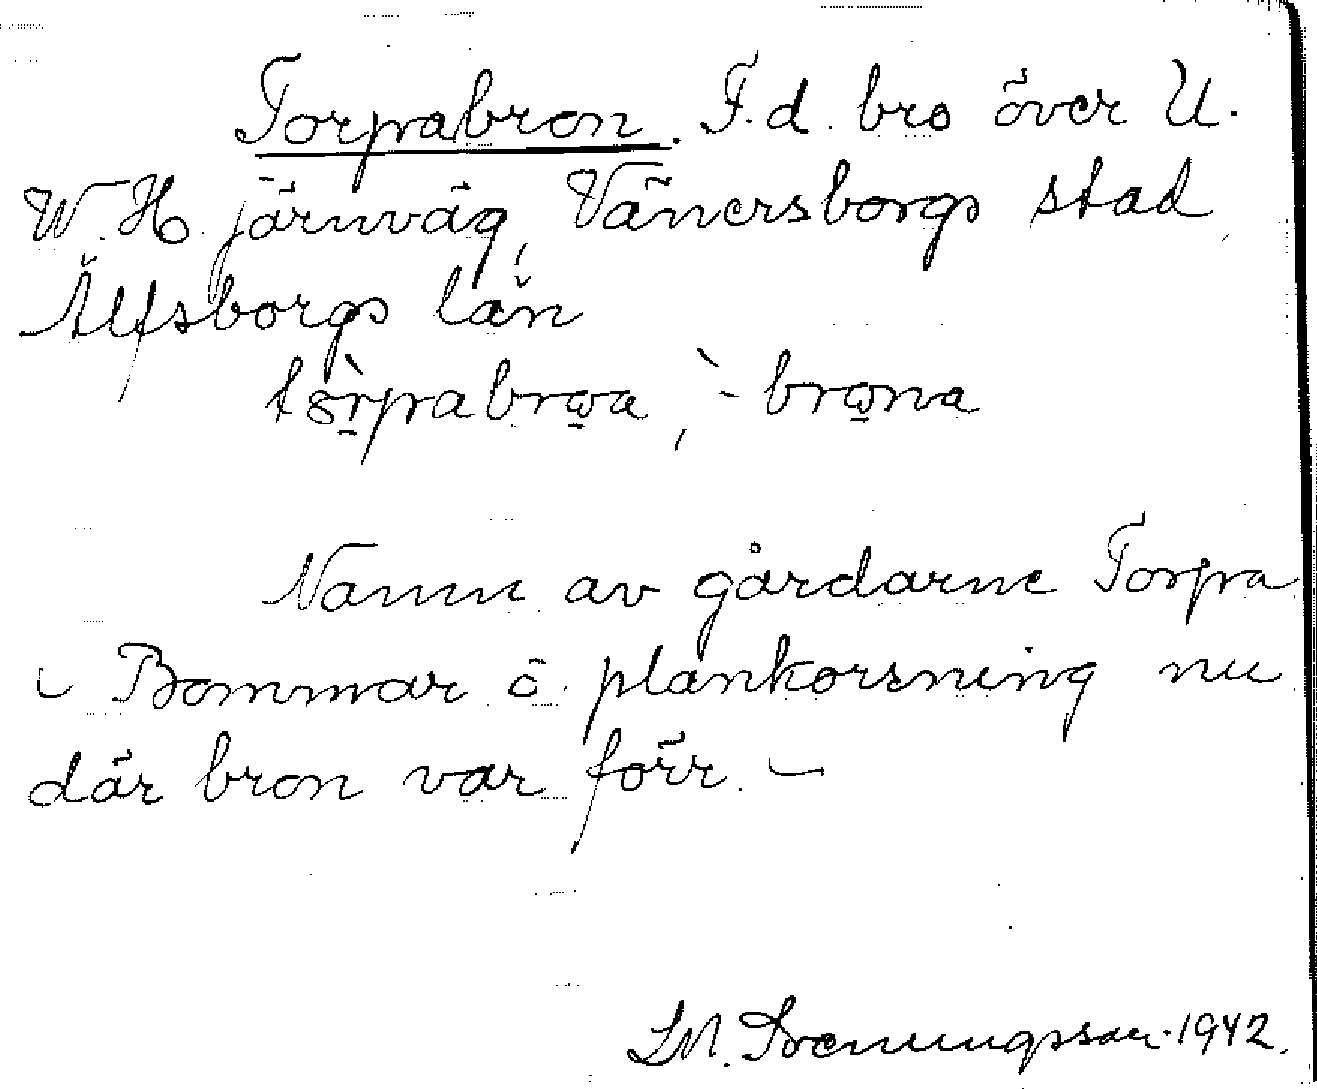 Torpabron. F.d. bro över U.
W.H. järnväg, Vänersborgs stad,
Älfsborgs län
tòrpabroa, `-brona
Namn av gårdarne Torpa
⌣ Bommar o. plankorsning nu
där bron var förr. ⌣
1942.